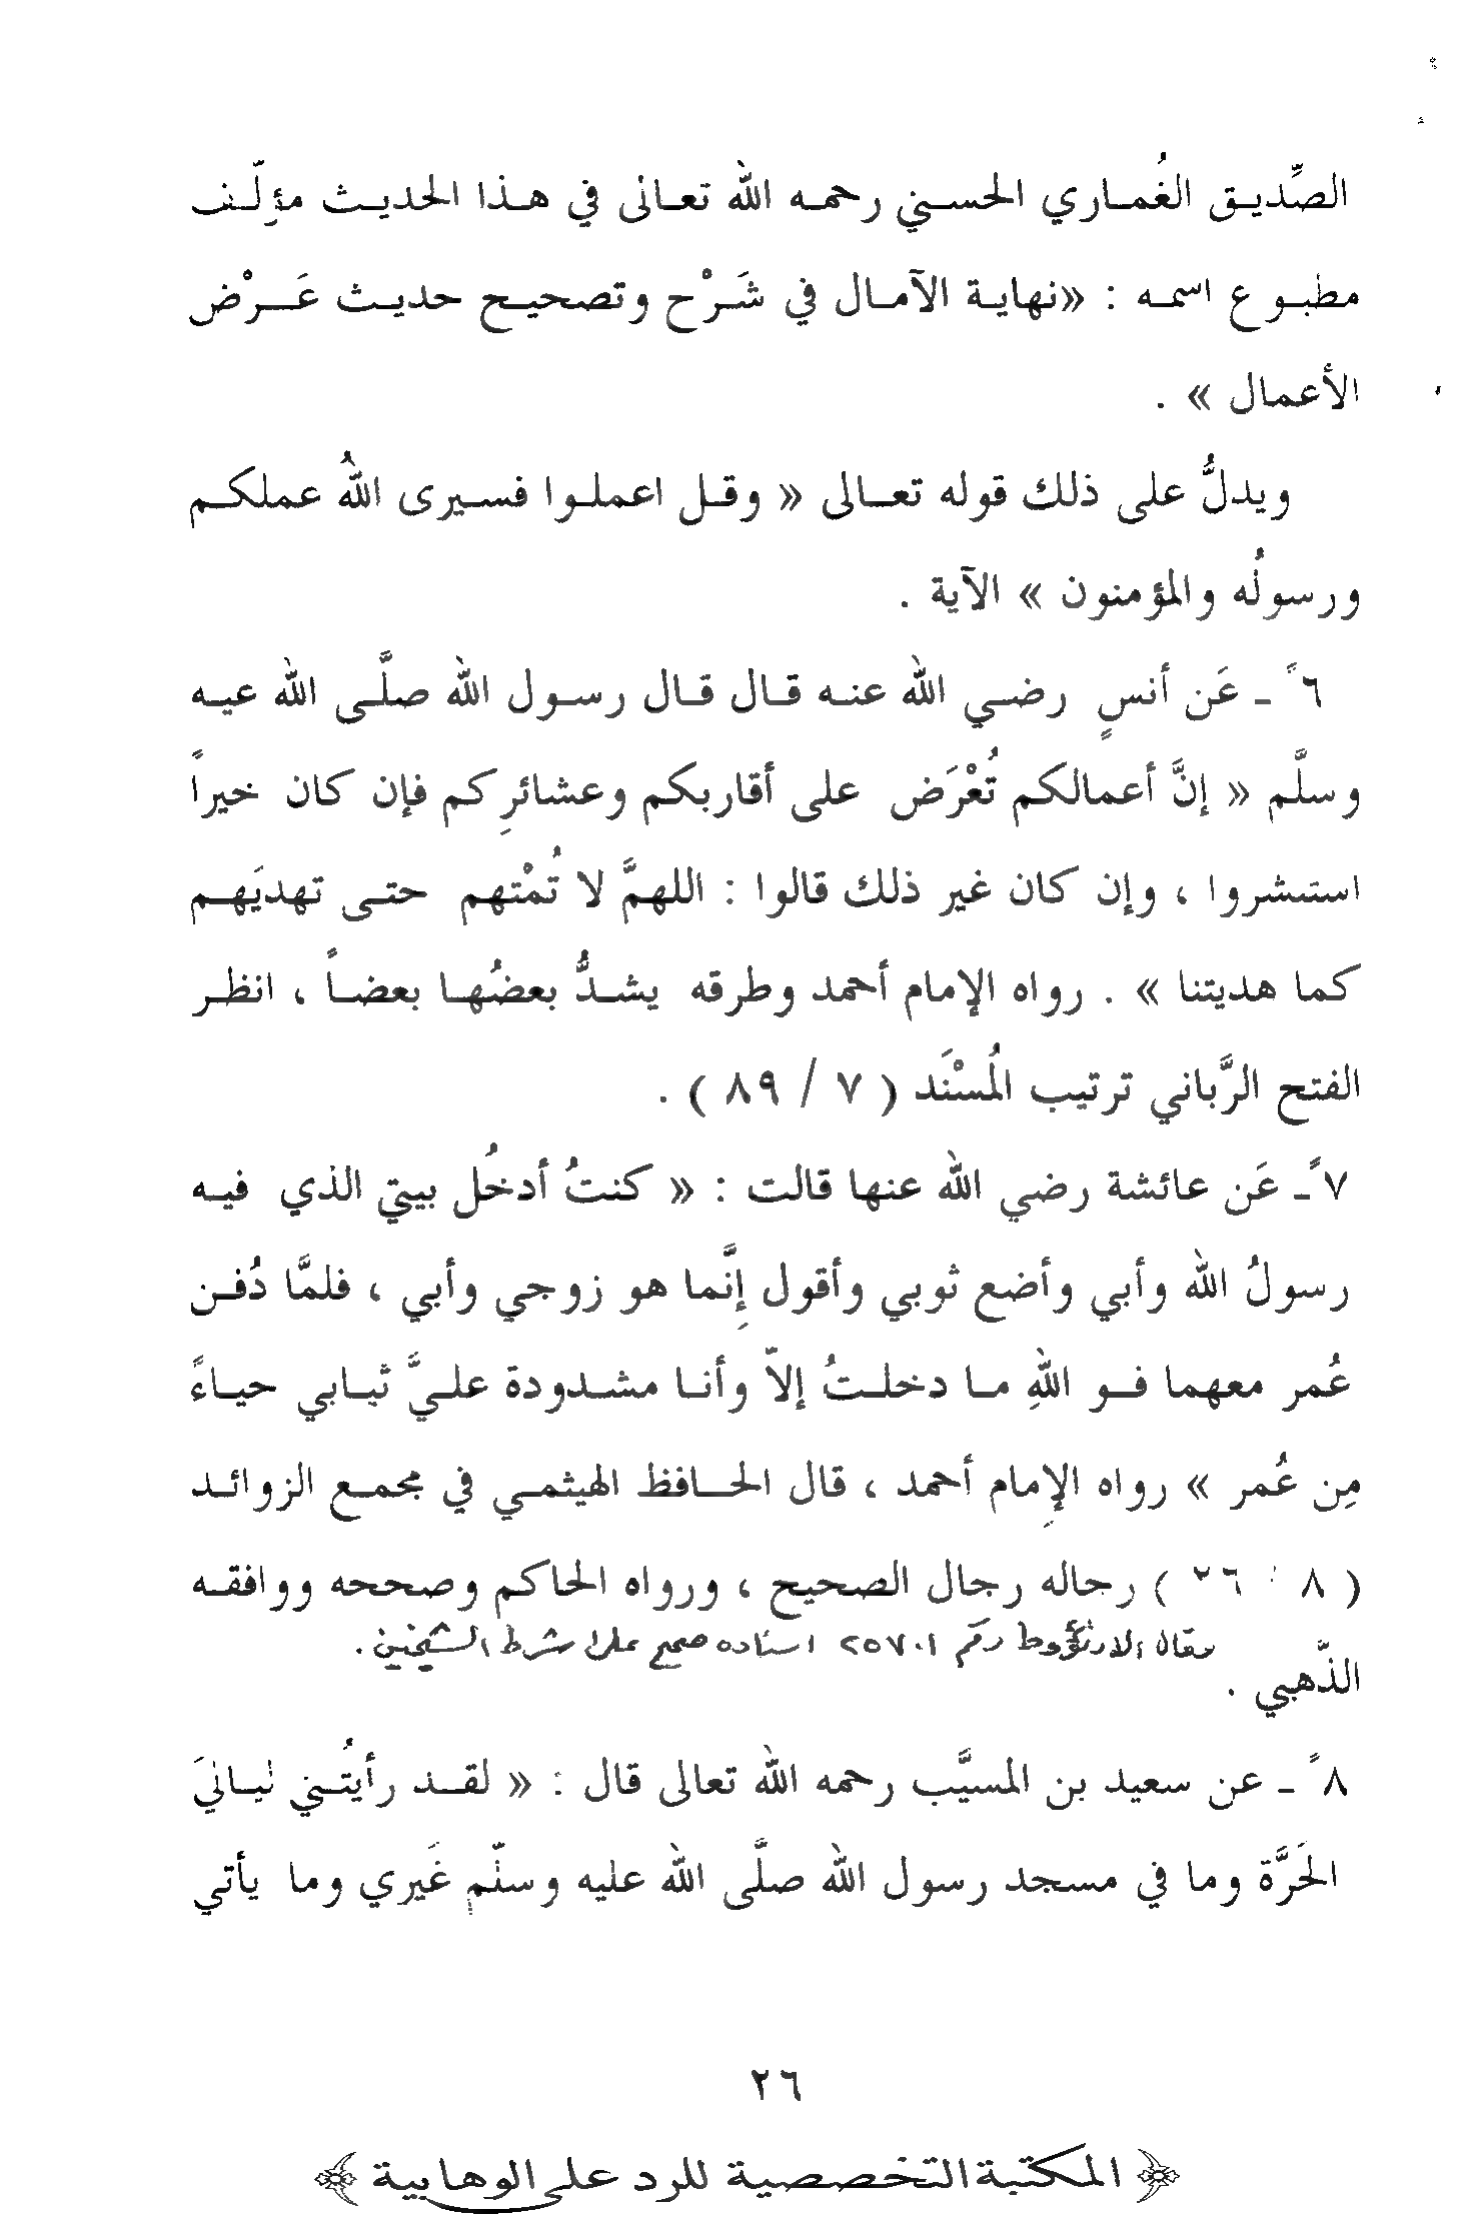 الصِّديق الغُماري الحسني رحمه الله تعالى في هذا الحديث مؤلِّف
مطبوع اسمه : «نهاية الآمال في شَرْح وتصحيح حديث عَرْض
الأعمال » .
ويدلُّ على ذلك قوله تعالى « وقل اعملوا فسيرى اللهُ عملكم
ورسولُه والمؤمنون » الآية .
٦ً ـ عَن أنسٍ رضي الله عنه قال قال رسول الله صلَّى الله عيه
وسلَّم « إنَّ أعمالكم تُعْرَض على أقاربكم وعشائرِكم فإن كان خيراً
استبشروا ، وإن كان غير ذلك قالوا : اللهمَّ لا تُمْتهم حتى تهديَهم
كما هديتنا » . رواه الإمام أحمد وطرقه يشدُّ بعضُها بعضاً ، انظر
الفتح الرَّباني ترتيب المُسْنَد ( ٧ / ٨٩ ) .
٧ً ـ عَن عائشة رضي الله عنها قالت : « كنتُ أدخُل بيتي الذي فيه
رسولُ الله وأبي وأضع ثوبي وأقول إنَّما هو زوجي وأبي ، فلمَّا دُفن
عُمر معهما فو اللهِ ما دخلتُ إلاّ وأنا مشدودة عليَّ ثيابي حياءً
مِن عُمر » رواه الإمام أحمد ، قال الحافظ الهيثمي في مجمع الزوائد
( ٨ / ٢٦ ) رجاله رجال الصحيح ، ورواه الحاكم وصححه ووافقه
وقال الارنؤوط رقم ٢٥٧٠١ اسناده صحيح على شرط الشيخين .
الذَّهبي .
٨ً ـ عن سعيد بن المسيَّب رحمه الله تعالى قال : « لقد رأيتُني لياليَ
الحَرَّة وما في مسجد رسول الله صلَّى الله عليه وسلّم غَيري وما يأتي
٢٦
المكتبة التخصصية للرد على الوهابية